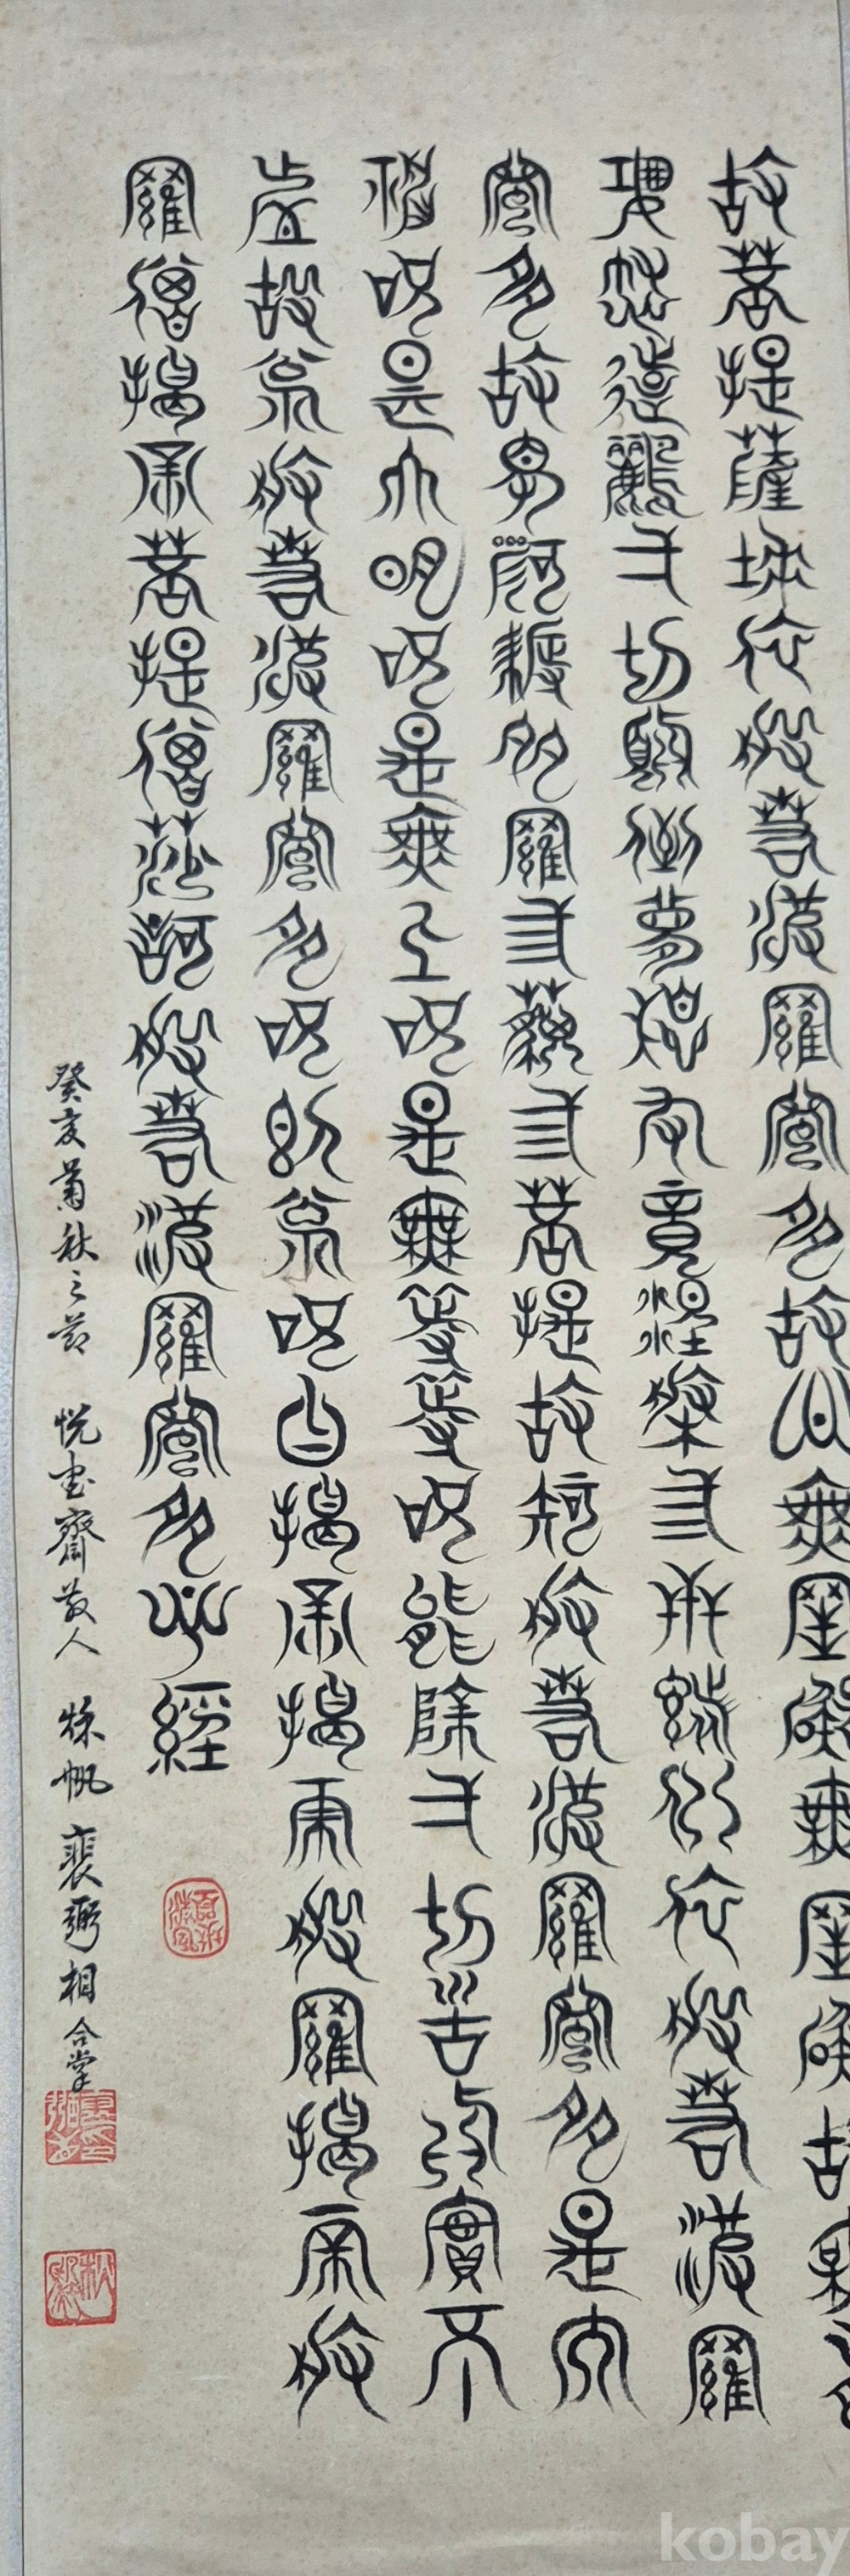 故菩提薩埵依般若波羅蜜多故心無罣礙無罣礙故無有
恐怖遠離一切顛倒夢想究竟涅槃三世諸佛依般若波羅
蜜多故得阿耨多羅三藐三菩提故知般若波羅蜜多是大
神咒是大明咒是無上咒是無等等咒能除一切苦真實不
虛故說般若波羅蜜多咒即說咒曰揭帝揭帝般羅揭帝般
羅僧揭帝菩提僧莎訶般若波羅蜜多心經
癸亥菊秋之節 悅書齋散人 帆 裵弼相 合掌
kobay